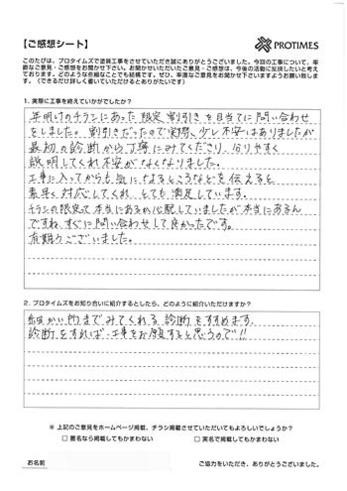 【ご感想シート】
PROTIMES
このたびは、プロタイムズで塗装工事をさせていただき誠にありがとうございました。今回の工事について、率
直なご意見・ご感想をお聞かせ下さい。お聞かせいただいたご意見・ご感想は、今後の活動に反映したいと考え
ております。どのような些細なことでも結構です。ぜひ、率直なご意見をお聞かせ下さいますようお願い致しま
す。（できるだけ詳しく書いていただけるとありがたいです）
1. 実際に工事を終えていかがでしたか？
年明けのチラシにあった限定割引きを目当てに問い合わせ
をしました。割引きだったので実際、少し不安はありましたが
最初の診断から丁寧にみてくださり、分りやすく
説明してくれ不安がなくなりました。
工事に入ってからも気になるところなどを伝えると
素早く対応してくれ、とても満足しています。
チラシの限定って本当にあるか心配していましたが本当にあるん
ですね。すぐに問い合わせして良かったです。
有難うございました。
2. プロタイムズをお知り合いに紹介するとしたら、どのように紹介いただけますか？
細かい所までみてくれる診断をすすめます。
診断をすれば、工事をお願すると思うので!!
※ 上記のご意見をホームページ掲載、チラシ掲載させていただいてもよろしいでしょうか？
□ 匿名なら掲載してもかまわない □ 実名で掲載してもかまわない
お名前
ご協力をいただき、ありがとうございました。